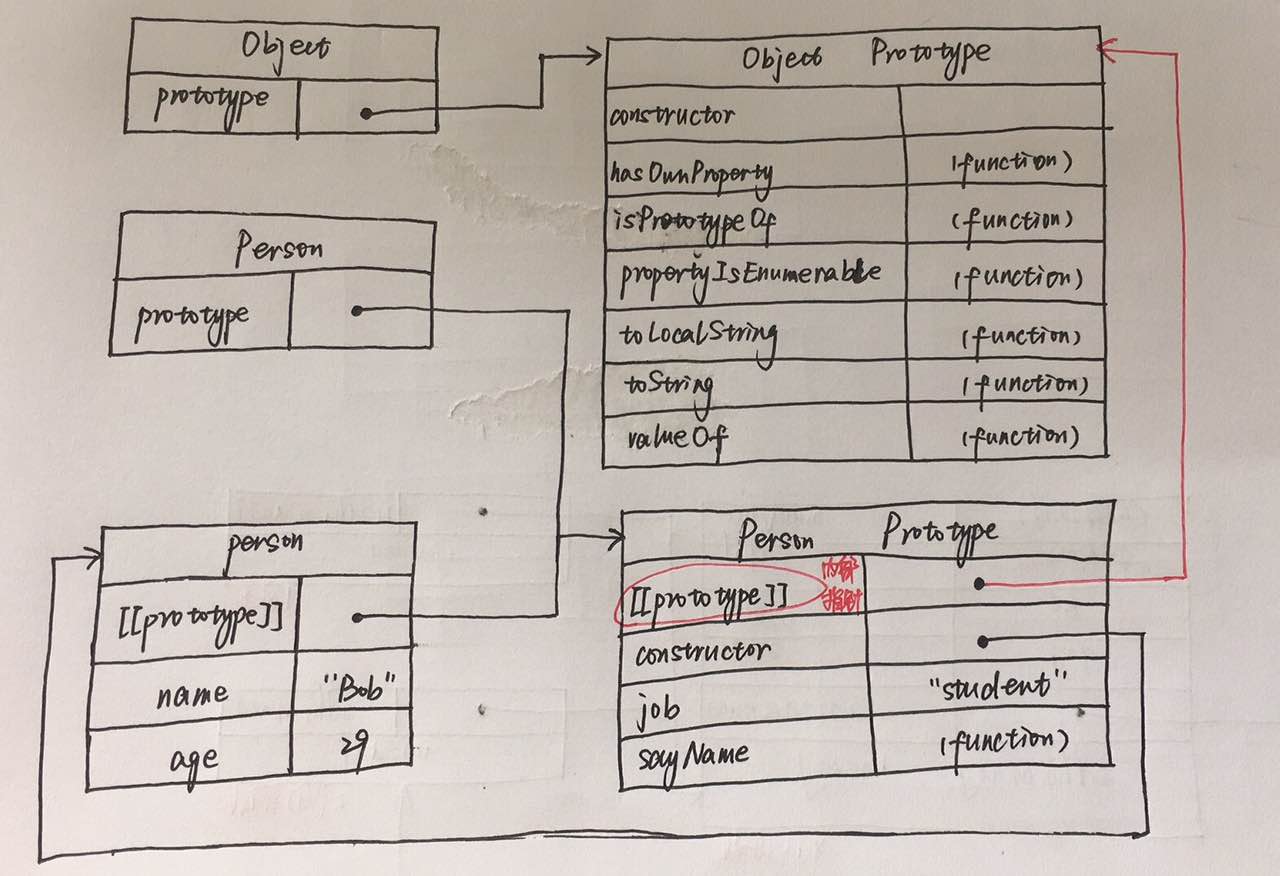 Object
prototype
Object Prototype
constructor
hasOwnProperty (function)
isPrototypeOf (function)
propertyIsEnumerable (function)
toLocalString (function)
toString (function)
valueOf (function)
Person
prototype
person
[[prototype]]
name "Bob"
age 29
Person Prototype
[[prototype]] 内部
指针
constructor
job "student"
sayName (function)